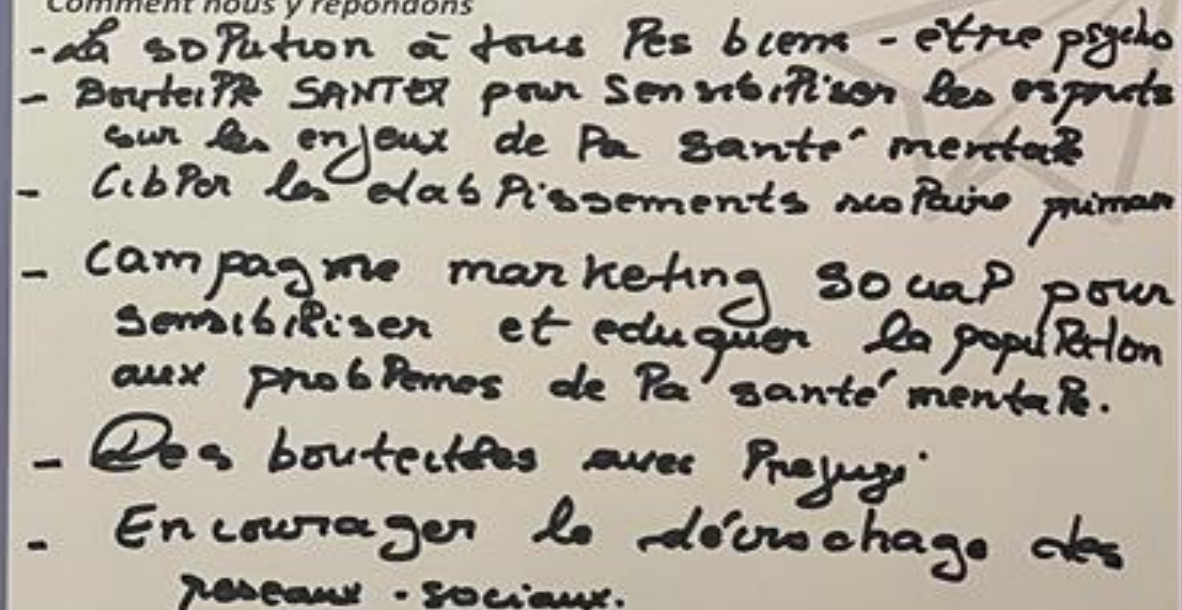 Comment nous y répondons
- La solution à tous les biens - être psycho
- Bouteille SANTEX pour sensibiliser les esprits
sur les enjeux de la santé mentale
- Cibler les etablissements scolaire primar
- Campagne marketing social pour
sensibiliser et eduquer la population
aux problemes de la santé mentale.
- Des bouteilles avec Prejugé
- Encourager le décrochage des
reseaux - sociaux.